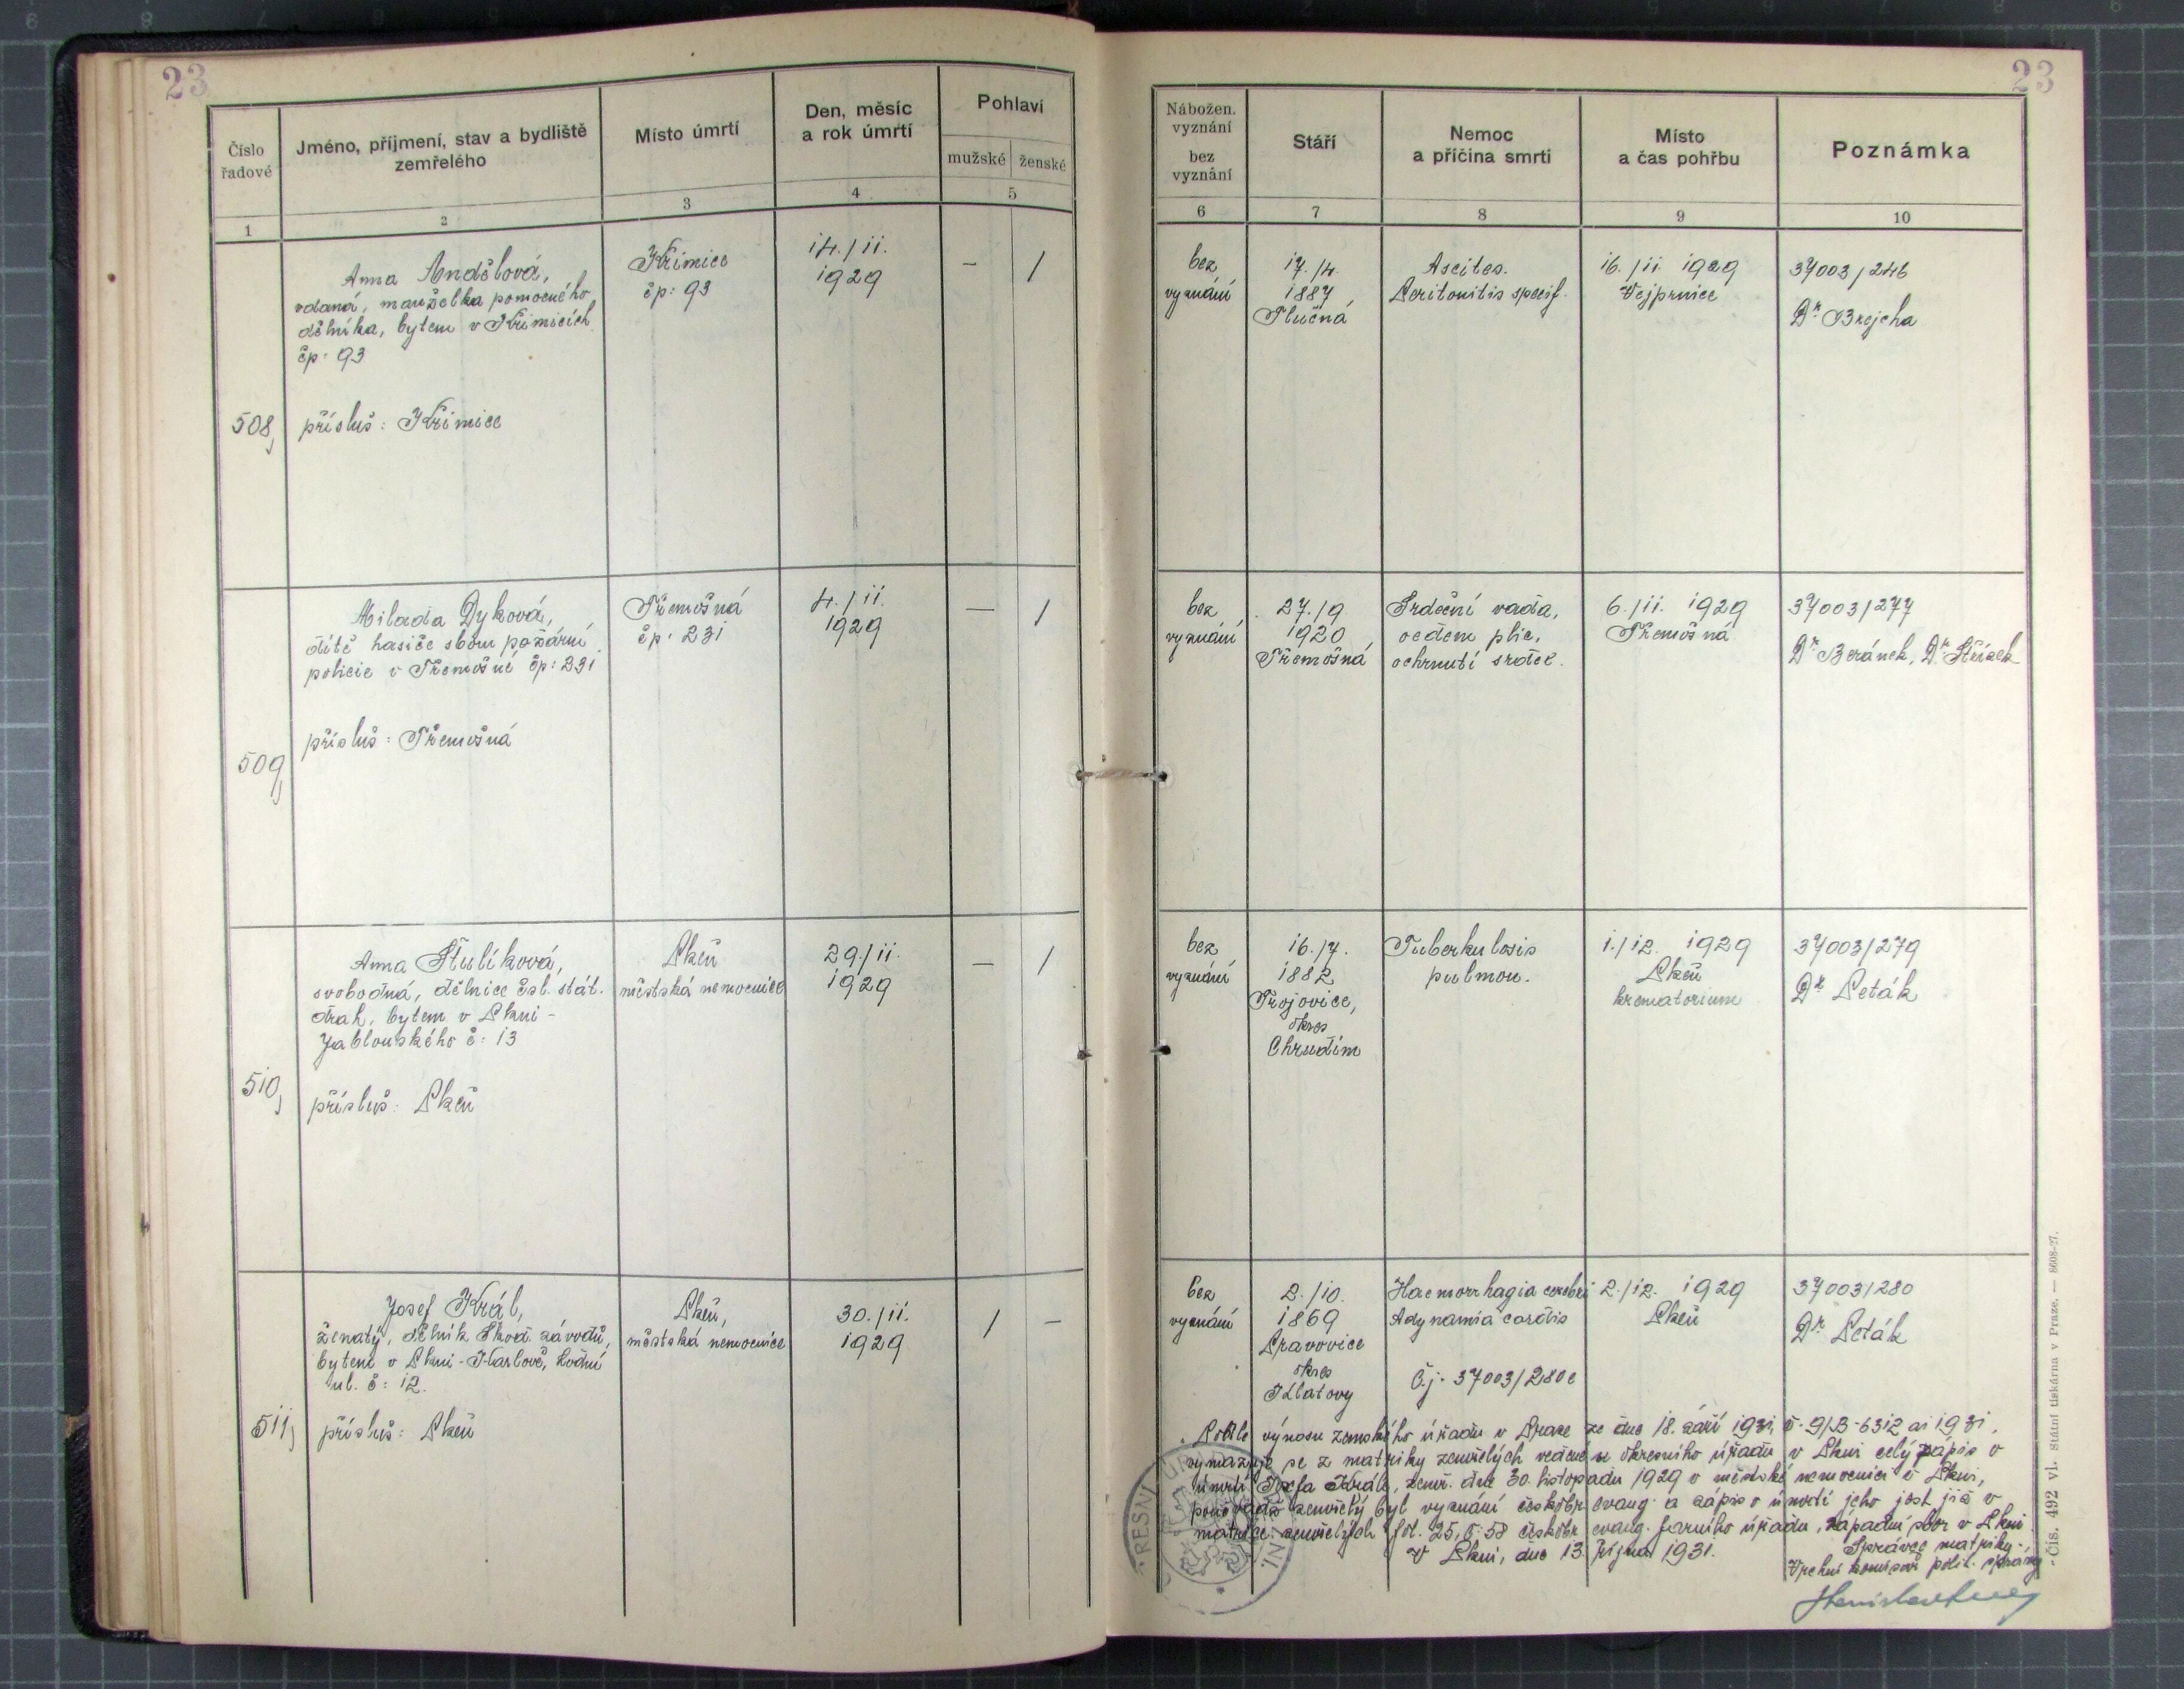 23
23
Číslo řadové
Jméno, příjmení, stav a bydliště zemřelého
Místo úmrtí
Den, měsíc a rok úmrtí
Pohlaví
mužské
ženské
1
2
3
4
5
Nábožen. vyznání
bez vyznání
Stáří
Nemoc a příčina smrti
Místo a čas pohřbu
Poznámka
6
7
8
9
10
508,
Anna Andělová,
vdaná, manželka pomocného
dělníka, bytem v Křimicích
čp: 93
přísluš: Křimice
Křimice
čp: 93
14./11.
1929
–
/
bez
vyznání
17./4.
1887
Tlučná
Ascites.
Peritonitis specif.
16./11. 1929
Vejprnice
37003/246
Dr. Brejcha
509,
Milada Dyková,
dítě hasiče sboru požární
policie v Třemošné, čp: 231
přísluš: Třemošná
Třemošná
čp: 231
4./11.
1929
–
/
bez
vyznání
27./9.
1920
Třemošná
Srdeční vada,
oedem plic,
ochrnutí srdce.
6./11. 1929
Třemošná
37003/277
Dr. Beránek, Dr.
510,
Anna Štulíková,
svobodná, dělnice čsl. stát.
drah, bytem v Plzni -
Jablonského č: 13
přísluš: Plzeň
Plzeň
městská nemocnice
29./11.
1929
–
/
bez
vyznání
16./7.
1882
Trojovice,
okres
Chrudim
Tuberkulosis
pulmon.
1./12. 1929
Plzeň
krematorium
37003/279
Dr. Peták
511,
Josef Král,
ženatý, dělník Škod. závodů,
bytem v Plzni-Karlově, Vodní
ul. č: 12.
přísluš: Plzeň
Plzeň,
městská nemocnice
30./11.
1929
/
–
bez
vyznání
2./10.
1869
Pravovice
okres
Klatovy
Haemorrhagia cerebri
Adynamia cordis
Č.j. 37003/280
2./12. 1929
Plzeň
37003/280
Dr. Peták
Podle výnosu zemského úřadu v Praze ze dne 18. září 1931, č. 9/B-6312 ai 1931,
vymazuje se z matriky zemřelých vedené u okresního úřadu v Plzni celý zápis o
úmrtí Josefa Krále, zemř. dne 30. listopadu 1929 v městské nemocnici v Plzni,
zemřelý byl vyznání českobr. evang. a zápis o úmrtí jeho jest již v
matrice zemřelých fol. 25, č. 58 českobr. evang. farního úřadu, západní sbor v Plzni.
V Plzni, dne 13. října 1931.
Správce matriky:
Vrchní komisař polit. správy
Čís. 492 vl. Státní tiskárna v Praze. — 8608-27.